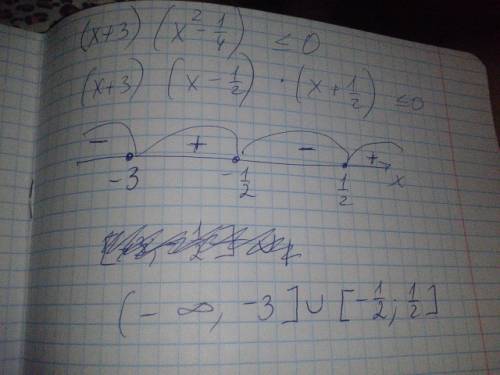 (x+3) (x² - 1/4) ≤ 0
(x+3) (x - 1/2) · (x + 1/2) ≤ 0
- + - +
-3 -1/2 1/2 x
(- ∞, -3] ∪ [-1/2; 1/2]